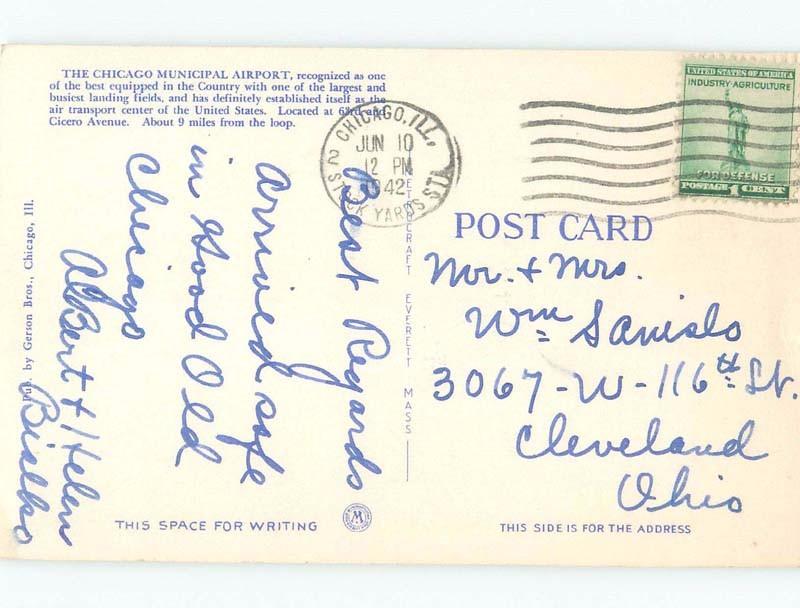 THE CHICAGO MUNICIPAL AIRPORT, recognized as one
of the best equipped in the Country with one of the largest and
busiest landing fields, and has definitely established itself as the
air transport center of the United States. Located at 63rd and
Cicero Avenue. About 9 miles from the loop.
Best Regards
arrived safe
in Good Old
Chicago
Albert & Helen
Bialko
Pub. by Gerson Bros., Chicago, Ill.
THIS SPACE FOR WRITING
M
CHICAGO, ILL.
JUN 10
12 PM
1942
2 STOCK YARDS STA.
EVERETT MASS
UNITED STATES OF AMERICA
INDUSTRY-AGRICULTURE
FOR DEFENSE
POSTAGE 1 CENT
POST CARD
Mr. & Mrs.
Wm Sanislo
3067-W-116th St.
Cleveland
Ohio
THIS SIDE IS FOR THE ADDRESS